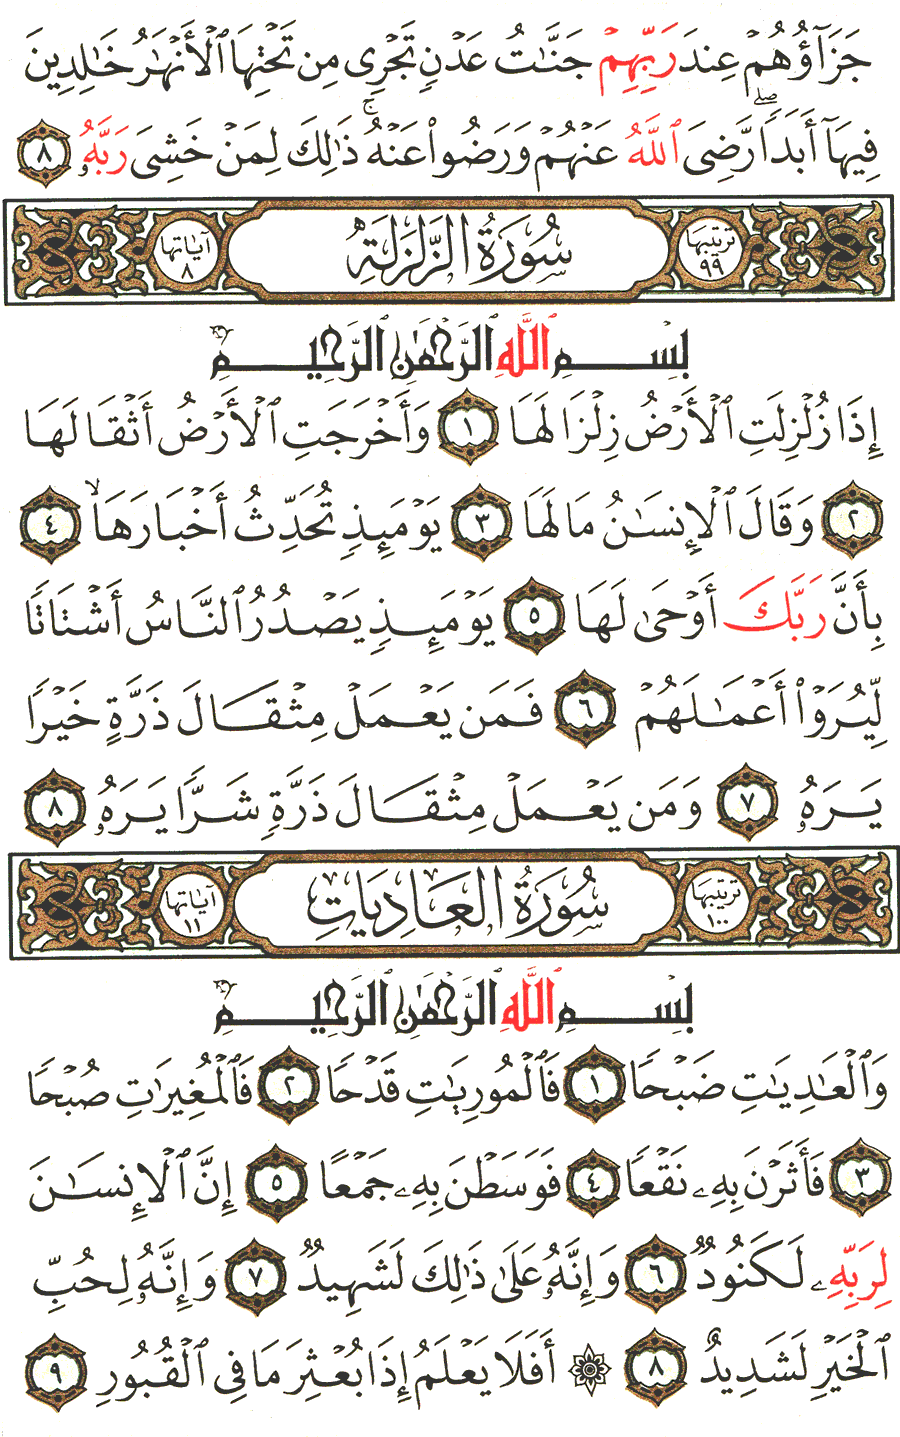 جَزَآؤُهُمْ عِندَ رَبِّهِمْ جَنَّـٰتُ عَدْنٍ تَجْرِى مِن تَحْتِهَا ٱلْأَنْهَـٰرُ خَـٰلِدِينَ
فِيهَآ أَبَدًا ۖ رَّضِىَ ٱللَّهُ عَنْهُمْ وَرَضُوا۟ عَنْهُ ۚ ذَٰلِكَ لِمَنْ خَشِىَ رَبَّهُۥ ٨
ترتيبها ٩٩ سُورَةُ الزَّلْزَلَةِ آياتها ٨
بِسْمِ ٱللَّهِ ٱلرَّحْمَـٰنِ ٱلرَّحِيمِ
إِذَا زُلْزِلَتِ ٱلْأَرْضُ زِلْزَالَهَا ١ وَأَخْرَجَتِ ٱلْأَرْضُ أَثْقَالَهَا
٢ وَقَالَ ٱلْإِنسَـٰنُ مَا لَهَا ٣ يَوْمَئِذٍ تُحَدِّثُ أَخْبَارَهَا ۙ ٤
بِأَنَّ رَبَّكَ أَوْحَىٰ لَهَا ٥ يَوْمَئِذٍ يَصْدُرُ ٱلنَّاسُ أَشْتَاتًا
لِّيُرَوْا۟ أَعْمَـٰلَهُمْ ٦ فَمَن يَعْمَلْ مِثْقَالَ ذَرَّةٍ خَيْرًا
يَرَهُۥ ٧ وَمَن يَعْمَلْ مِثْقَالَ ذَرَّةٍ شَرًّا يَرَهُۥ ٨
ترتيبها ١٠٠ سُورَةُ العَادِيَاتِ آياتها ١١
بِسْمِ ٱللَّهِ ٱلرَّحْمَـٰنِ ٱلرَّحِيمِ
وَٱلْعَـٰدِيَـٰتِ ضَبْحًا ١ فَٱلْمُورِيَـٰتِ قَدْحًا ٢ فَٱلْمُغِيرَٰتِ صُبْحًا
٣ فَأَثَرْنَ بِهِۦ نَقْعًا ٤ فَوَسَطْنَ بِهِۦ جَمْعًا ٥ إِنَّ ٱلْإِنسَـٰنَ
لِرَبِّهِۦ لَكَنُودٌ ٦ وَإِنَّهُۥ عَلَىٰ ذَٰلِكَ لَشَهِيدٌ ٧ وَإِنَّهُۥ لِحُبِّ
ٱلْخَيْرِ لَشَدِيدٌ ٨ ۞ أَفَلَا يَعْلَمُ إِذَا بُعْثِرَ مَا فِى ٱلْقُبُورِ ٩